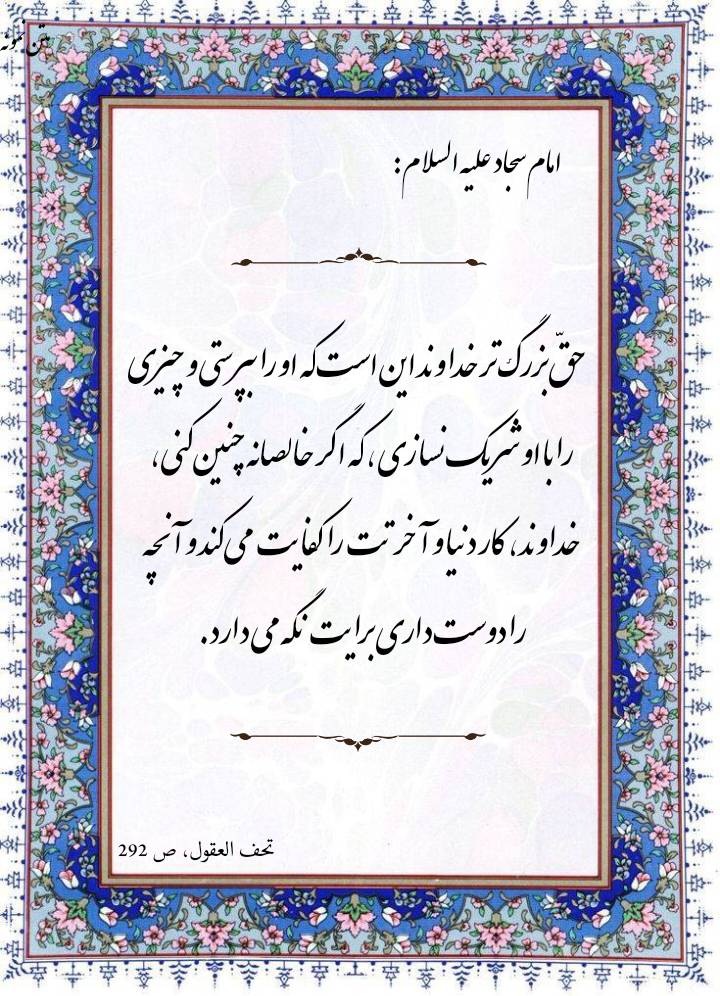 متن نمونه
امام سجاد علیه السلام :
حقّ بزرگ‌تر خداوند این است که او را بپرستی و چیزی
را با او شریک نسازی، که اگر خالصانه چنین کنی،
خداوند، کار دنیا و آخرتت را کفایت می‌کند و آنچه
را دوست داری برایت نگه می‌دارد.
تحف العقول، ص 292